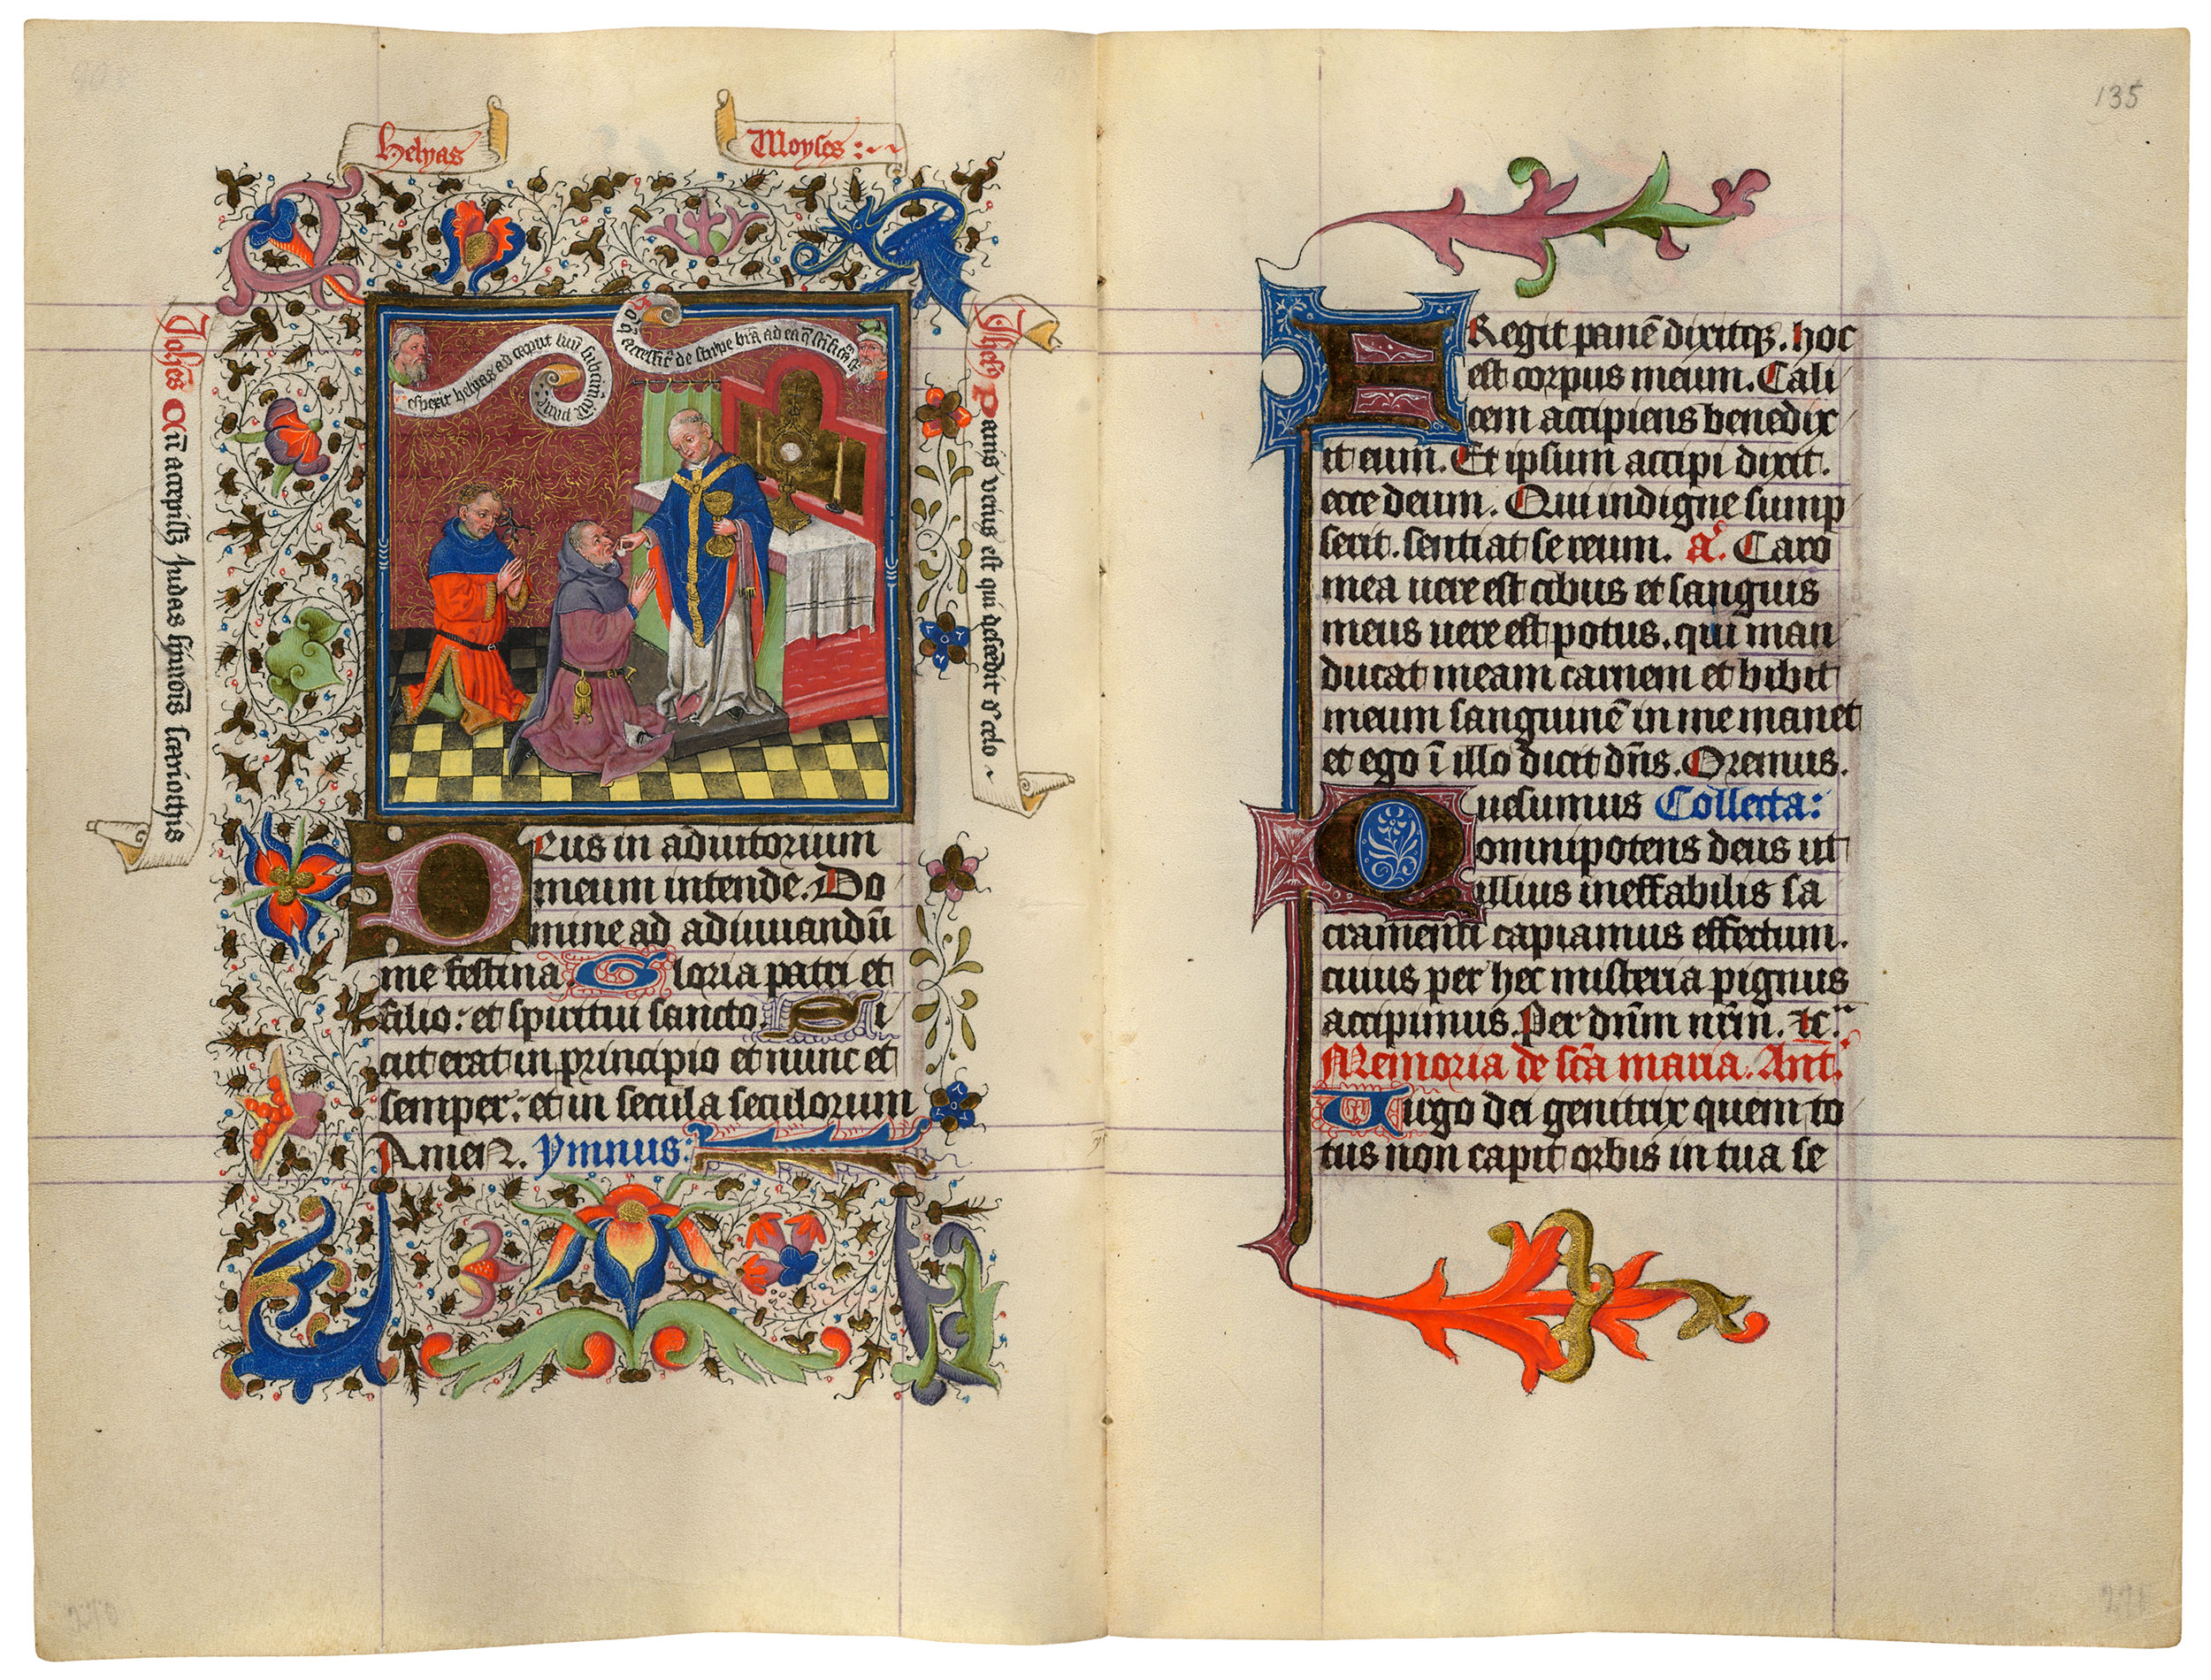 Helyas
Moyses :
Joh̄es
Cū accepiss; Judas symois scariothis
espexit helyas ad caput suū subcine
panē
accessit de stirpe
Panis verus est qui descēdit de celo
Deus in adiutorium
meum intende. Do
mine ad adiuuandū
me festina. Gloria patri et
filio : et spiritui sancto. Si
cut erat in principio et nunc et
semper : et in secula seculorum
Amen. ymnus :
135
FRegit panē dixitq;. hoc
est corpus meum. Cali
cem accipiens benedix
it eum. Et ipsum accipi dixit.
ecce deum. Qui indigne sump
serit. sentiat se reum. a. Caro
mea uere est cibus et sanguis
meus uere est potus. qui man
ducat meam carnem et bibit
meum sanguinē in me manet
et ego ī illo dicit dn̄s. Oremus.
Quesumus Collecta :
omnipotens deus ut
illius ineffabilis sa
cramenti capiamus effectum.
cuius per hec misteria pignus
accipimus. Per dn̄m nr̄m. ⁊c.
Memoria de sc̄a maria. Ant.
Virgo dei genitrix quem to
tus non capit orbis in tua se
270
271